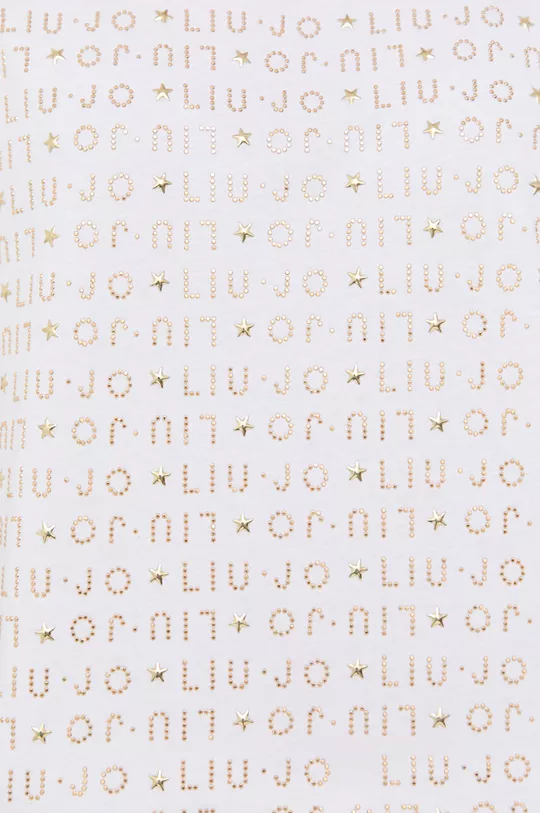 LIU·JO ★ LIU·JO ★ LIU·JO ★
LIU·JO ★ LIU·JO ★ LIU·JO
LIU·JO ★ LIU·JO ★ LIU·JO
LIU·JO ★ LIU·JO ★ LIU·JO
LIU·JO ★ LIU·JO ★ LIU·JO
LIU·JO ★ LIU·JO ★ LIU·JO
LIU·JO ★ LIU·JO ★ LIU·JO
LIU·JO ★ LIU·JO ★ LIU·JO
LIU·JO ★ LIU·JO ★ LIU·JO
LIU·JO ★ LIU·JO ★ LIU·JO
LIU·JO ★ LIU·JO ★ LIU·JO
LIU·JO ★ LIU·JO ★ LIU·JO
LIU·JO ★ LIU·JO ★ LIU·JO
LIU·JO ★ LIU·JO ★ LIU·JO
LIU·JO ★ LIU·JO ★ LIU·JO
LIU·JO ★ LIU·JO ★ LIU·JO
LIU·JO ★ LIU·JO LIU·JO